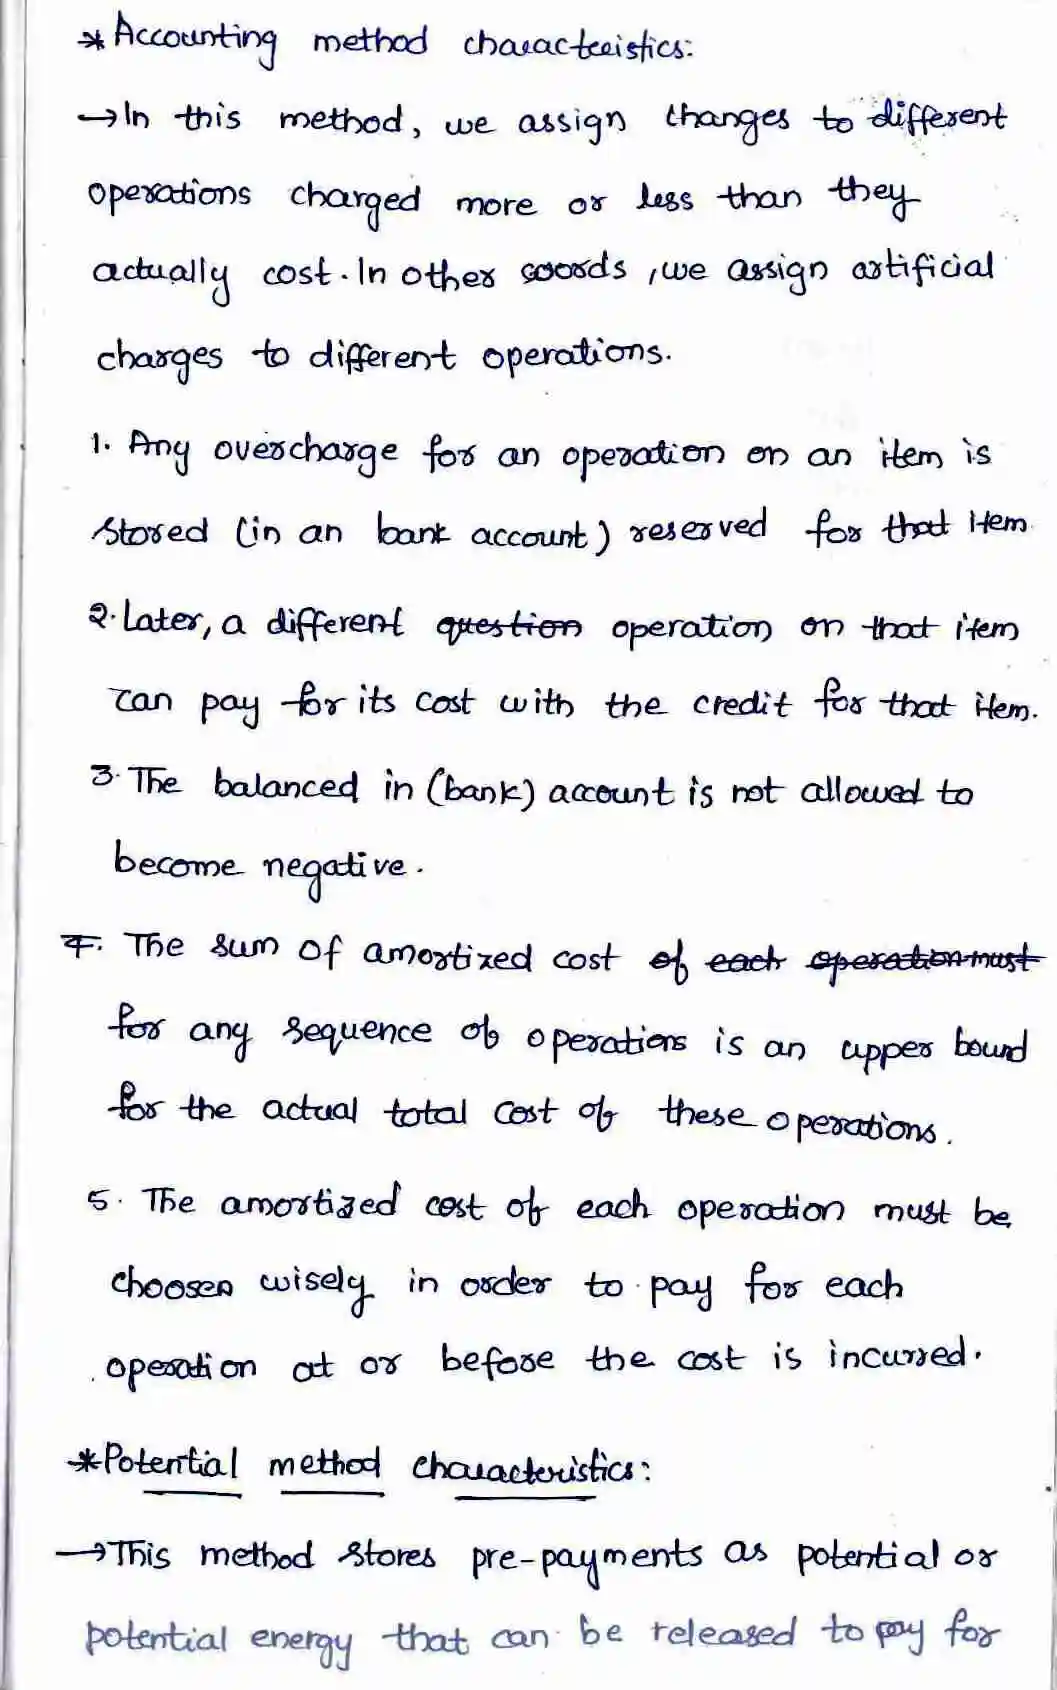 * Accounting method characteristics:
→ In this method, we assign changes to different
operations charged more or less than they
actually cost. In other words, we assign artificial
charges to different operations.
1. Any overcharge for an operation on an item is
stored (in an bank account) reserved for that item
2. Later, a different question operation on that item
can pay for its cost with the credit for that item.
3. The balanced in (bank) account is not allowed to
become negative.
4. The sum of amortized cost of each operation must
for any sequence of operations is an upper bound
for the actual total cost of these operations.
5. The amortized cost of each operation must be
choosen wisely in order to pay for each
operation at or before the cost is incurred.
* Potential method characteristics:
→ This method stores pre-payments as potential or
potential energy that can be released to pay for